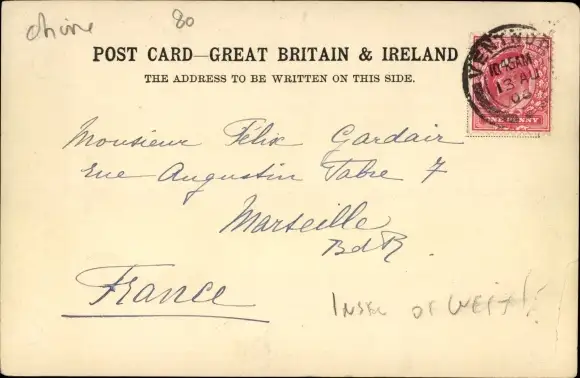 chine 80
POST CARD—GREAT BRITAIN & IRELAND
THE ADDRESS TO BE WRITTEN ON THIS SIDE.
VENTNOR
10.45AM
13 AU
ONE PENNY
Monsieur Félix Gardair
Rue Augustin Fabre 7
Marseille
BdR.
France
INSEL OF WEIT